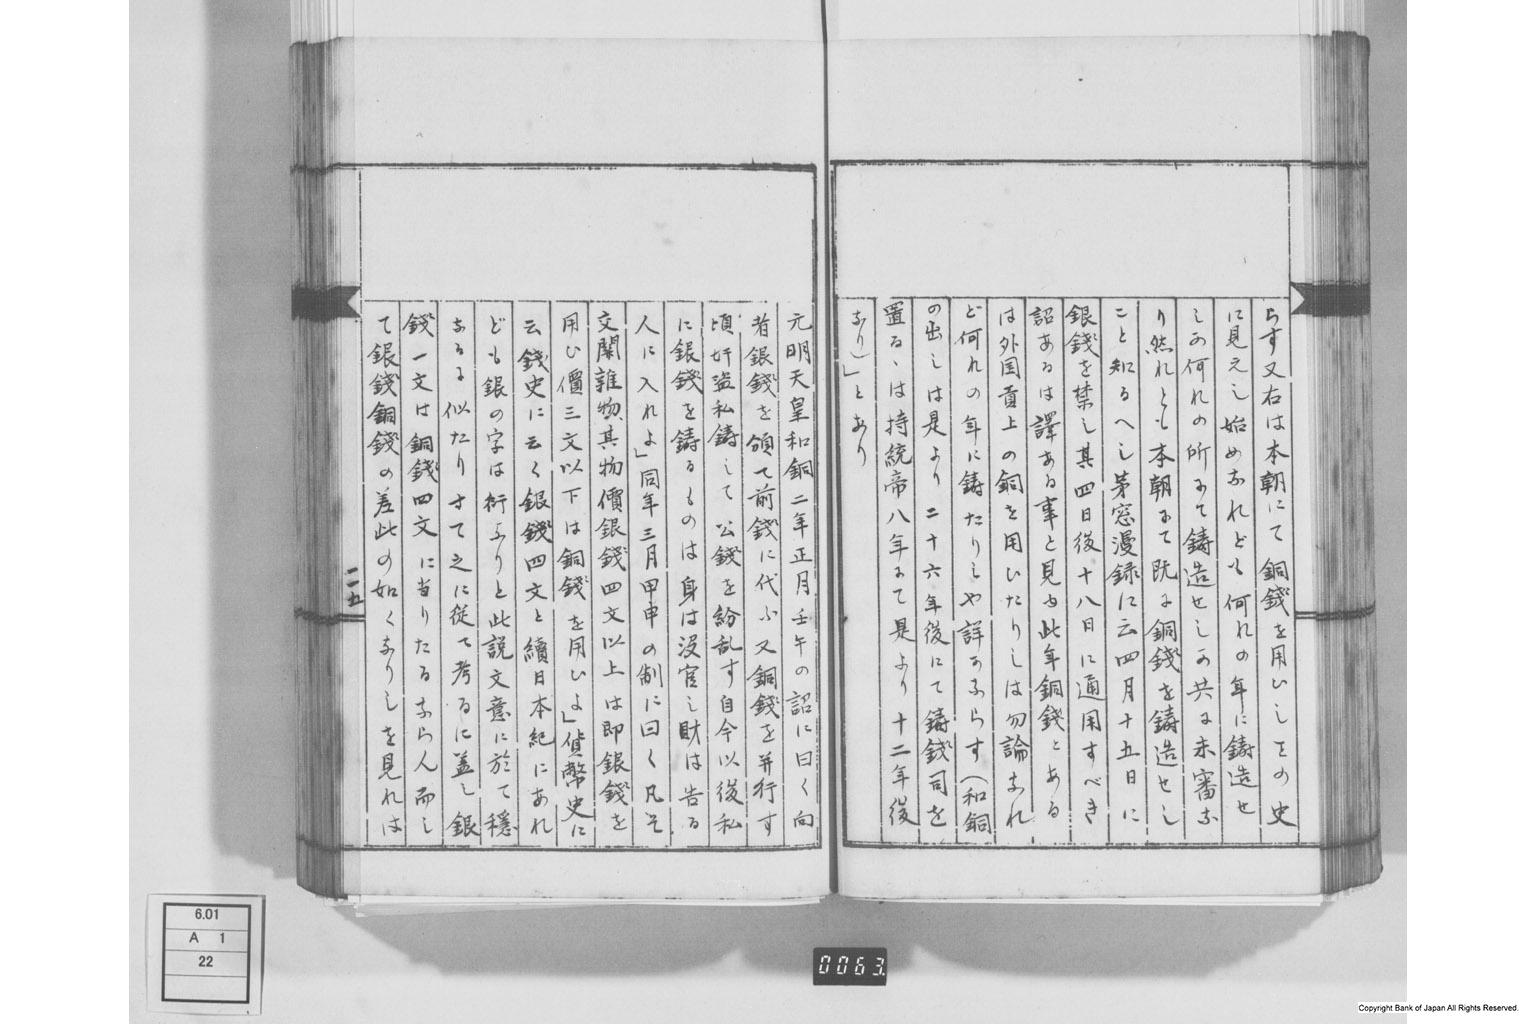 らす又右は本朝にて銅錢を用ひしをの史
に見えし始めなれども何れの年に鋳造せ
しか何れの所にて鋳造せしか共に未審な
り然れとも本朝にて既に銅錢を鋳造せし
こと知るへし茅窓漫録に云四月十五日に
銀錢を禁し其四日後十八日に通用すべき
詔あるは譯ある事と見ゆ此年銅錢とある
は外国貢上の銅を用ひたりしは勿論なれ
ど何れの年に鋳たりしや詳かならす(和銅
の出しは是より二十六年後にて鋳錢司を
置るゝは持統帝八年にて是より十二年後
なり)」とあり
元明天皇和銅二年正月壬午の詔に曰く向
者銀錢を頒て前錢に代ふ又銅錢を并行す
頃奸盗私鋳して公錢を紛乱す自今以後私
に銀錢を鋳るものは身は没官し財は告る
人に入れよ」同年三月甲申の制に曰く凡そ
交関雑物其物價銀錢四文以上は即銀錢を
用ひ價三文以下は銅錢を用ひよ」貨幣史に
云錢史に云く銀錢四文と續日本紀にあれ
ども銀の字は衍なりと此説文意に於て穏
なるに似たりさて之に從て考るに蓋し銀
錢一文は銅錢四文に当りたるならん而し
て銀錢銅錢の差此の如くなりしを見れは
二五
6.01
A 1
22
0063
Copyright Bank of Japan All Rights Reserved.